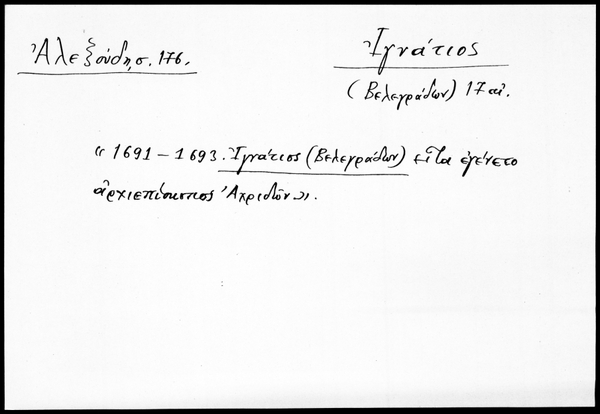 Ἀλεξούδη, σ. 176.
Ἰγνάτιος
(Βελεγράδων) 17 αἰ.
« 1691 – 1693. Ἰγνάτιος (Βελεγράδων) εἶτα ἐγένετο
ἀρχιεπίσκοπος Ἀχριδῶν».